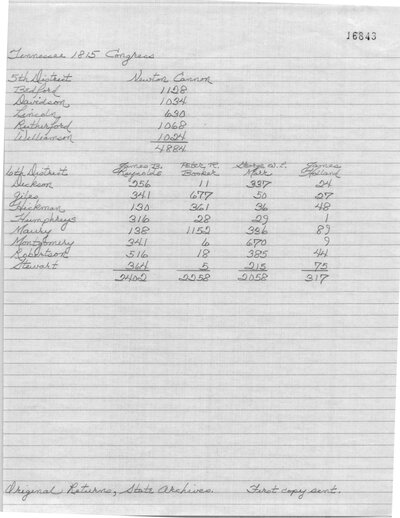 16843
Tennessee 1815 Congress
5th District Newton Cannon
Bedford 1128
Davidson 1034
Lincoln 630
Rutherford 1068
Williamson 1024
4884
James B. Peter R. George W. L. James
6th District Reynolds Booker Marr Holland
Dickson 256 11 337 24
Giles 341 677 50 27
Hickman 130 361 36 48
Humphreys 316 28 29 1
Maury 138 1152 336 89
Montgomery 341 6 670 9
Robertson 516 18 385 44
Stewart 364 5 215 75
2402 2258 2058 317
Original Returns, State Archives. First copy sent.